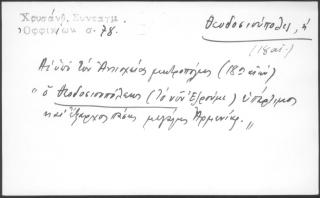 Χρυσάνθ. Συνταγμ.
Ὀφφικίων σ. 78.
Θεοδοσιούπολις, ἡ
(18 αἰ.)
Αἱ ὑπὸ τὸν Ἀντιοχείας μητροπόλεις (18ου αἰῶν)
"ὁ Θεοδοσιουπόλεως (τὸ νῦν Ἐζρούμ) ὑπέρτιμος
καὶ ἔξαρχος πάσης μεγάλης Ἀρμενίας."